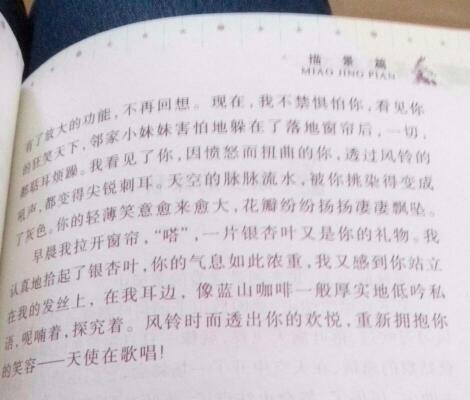 描景篇
MIAO JING PIAN
有了放大的功能，不再回想。现在，我不禁惧怕你，看见你
的狂笑天下，邻家小妹妹害怕地躲在了落地窗帘后，一切，
都聒耳烦躁。我看见了你，因愤怒而扭曲的你，透过风铃的
吼声，都变得尖锐刺耳。天空的脉脉流水，被你挑染得变成
了灰色。你的轻薄笑意愈来愈大，花瓣纷纷扬扬凄凄飘坠。
早晨我拉开窗帘，“嗒”，一片银杏叶又是你的礼物。我
认真地拾起了银杏叶，你的气息如此浓重，我又感到你站立
在我的发丝上，在我耳边，像蓝山咖啡一般厚实地低吟私
语，呢喃着，探究着。风铃时而透出你的欢悦，重新拥抱你
的笑容——天使在歌唱！